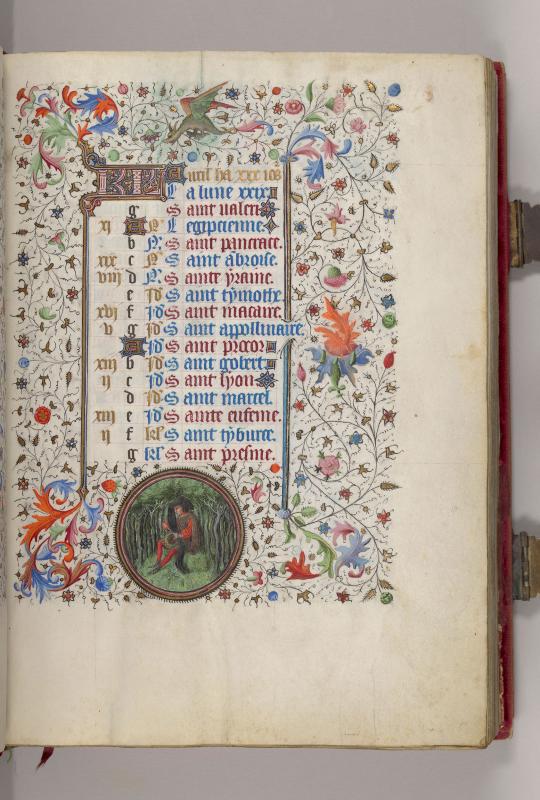 KL Auril ha xxx iors
La lune xxix
g Saint ualeri
xi A N L egipcienne
b N Saint pancrace.
xix c N Saint abroise.
viii d N Sainte yraine.
e Id Saint tymothe.
xvi f Id Saint macaire.
v g Id Saint appollinaire
A Id Saint procor
xiii b Id Saint gobert
ii c Id Saint lyon
d Id Saint marcel.
xiii e Id Sainte eufeme.
ii f kl Saint tyburce.
g kl Saint presme.